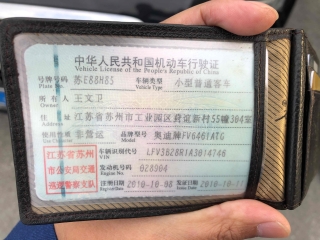 中华人民共和国机动车行驶证
Vehicle License of the People's Republic of China
号牌号码 苏E88H85 车辆类型 小型普通客车
Plate No. Vehicle Type
所有人 王文卫
Owner
住址 江苏省苏州市工业园区葑谊新村55幢304室
Address
使用性质 非营运 品牌型号 奥迪牌FV6461ATG
Use Character Model
江苏省苏州
市公安局交通
巡逻警察支队
车辆识别代号 LFV3B28R1A3014746
VIN
发动机号码 028904
Engine No.
注册日期 2010-10-08 发证日期
Register Date Issue Date